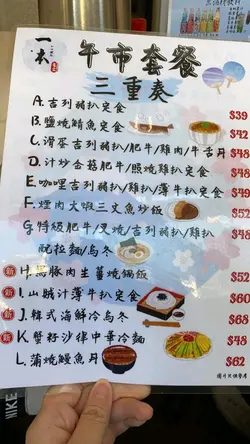 一本
午市套餐
三重奏
A.吉列豬扒定食 $39
B.鹽燒鯖魚定食
C.滑蛋吉列豬扒/肥牛/雞肉/牛舌丼 $48
D.汁炒合菇肥牛/照燒雞扒定食 $48
E.咖哩吉列豬扒/雞扒/薄牛扒定食 $49
F.煙肉大蝦三文魚炒飯
G.特級肥牛/叉燒/吉列豬扒/雞扒
豚拉麵/烏冬 $48
新 H.豚肉生薑燒鍋飯 $52
新 I.山賊汁薄牛扒定食 $60
新 J.韓式海鮮冷烏冬 $68
新 K.蟹籽沙律中華冷麵 $48
L.蒲燒鰻魚丼 $62
圖片只供參考
NIKE